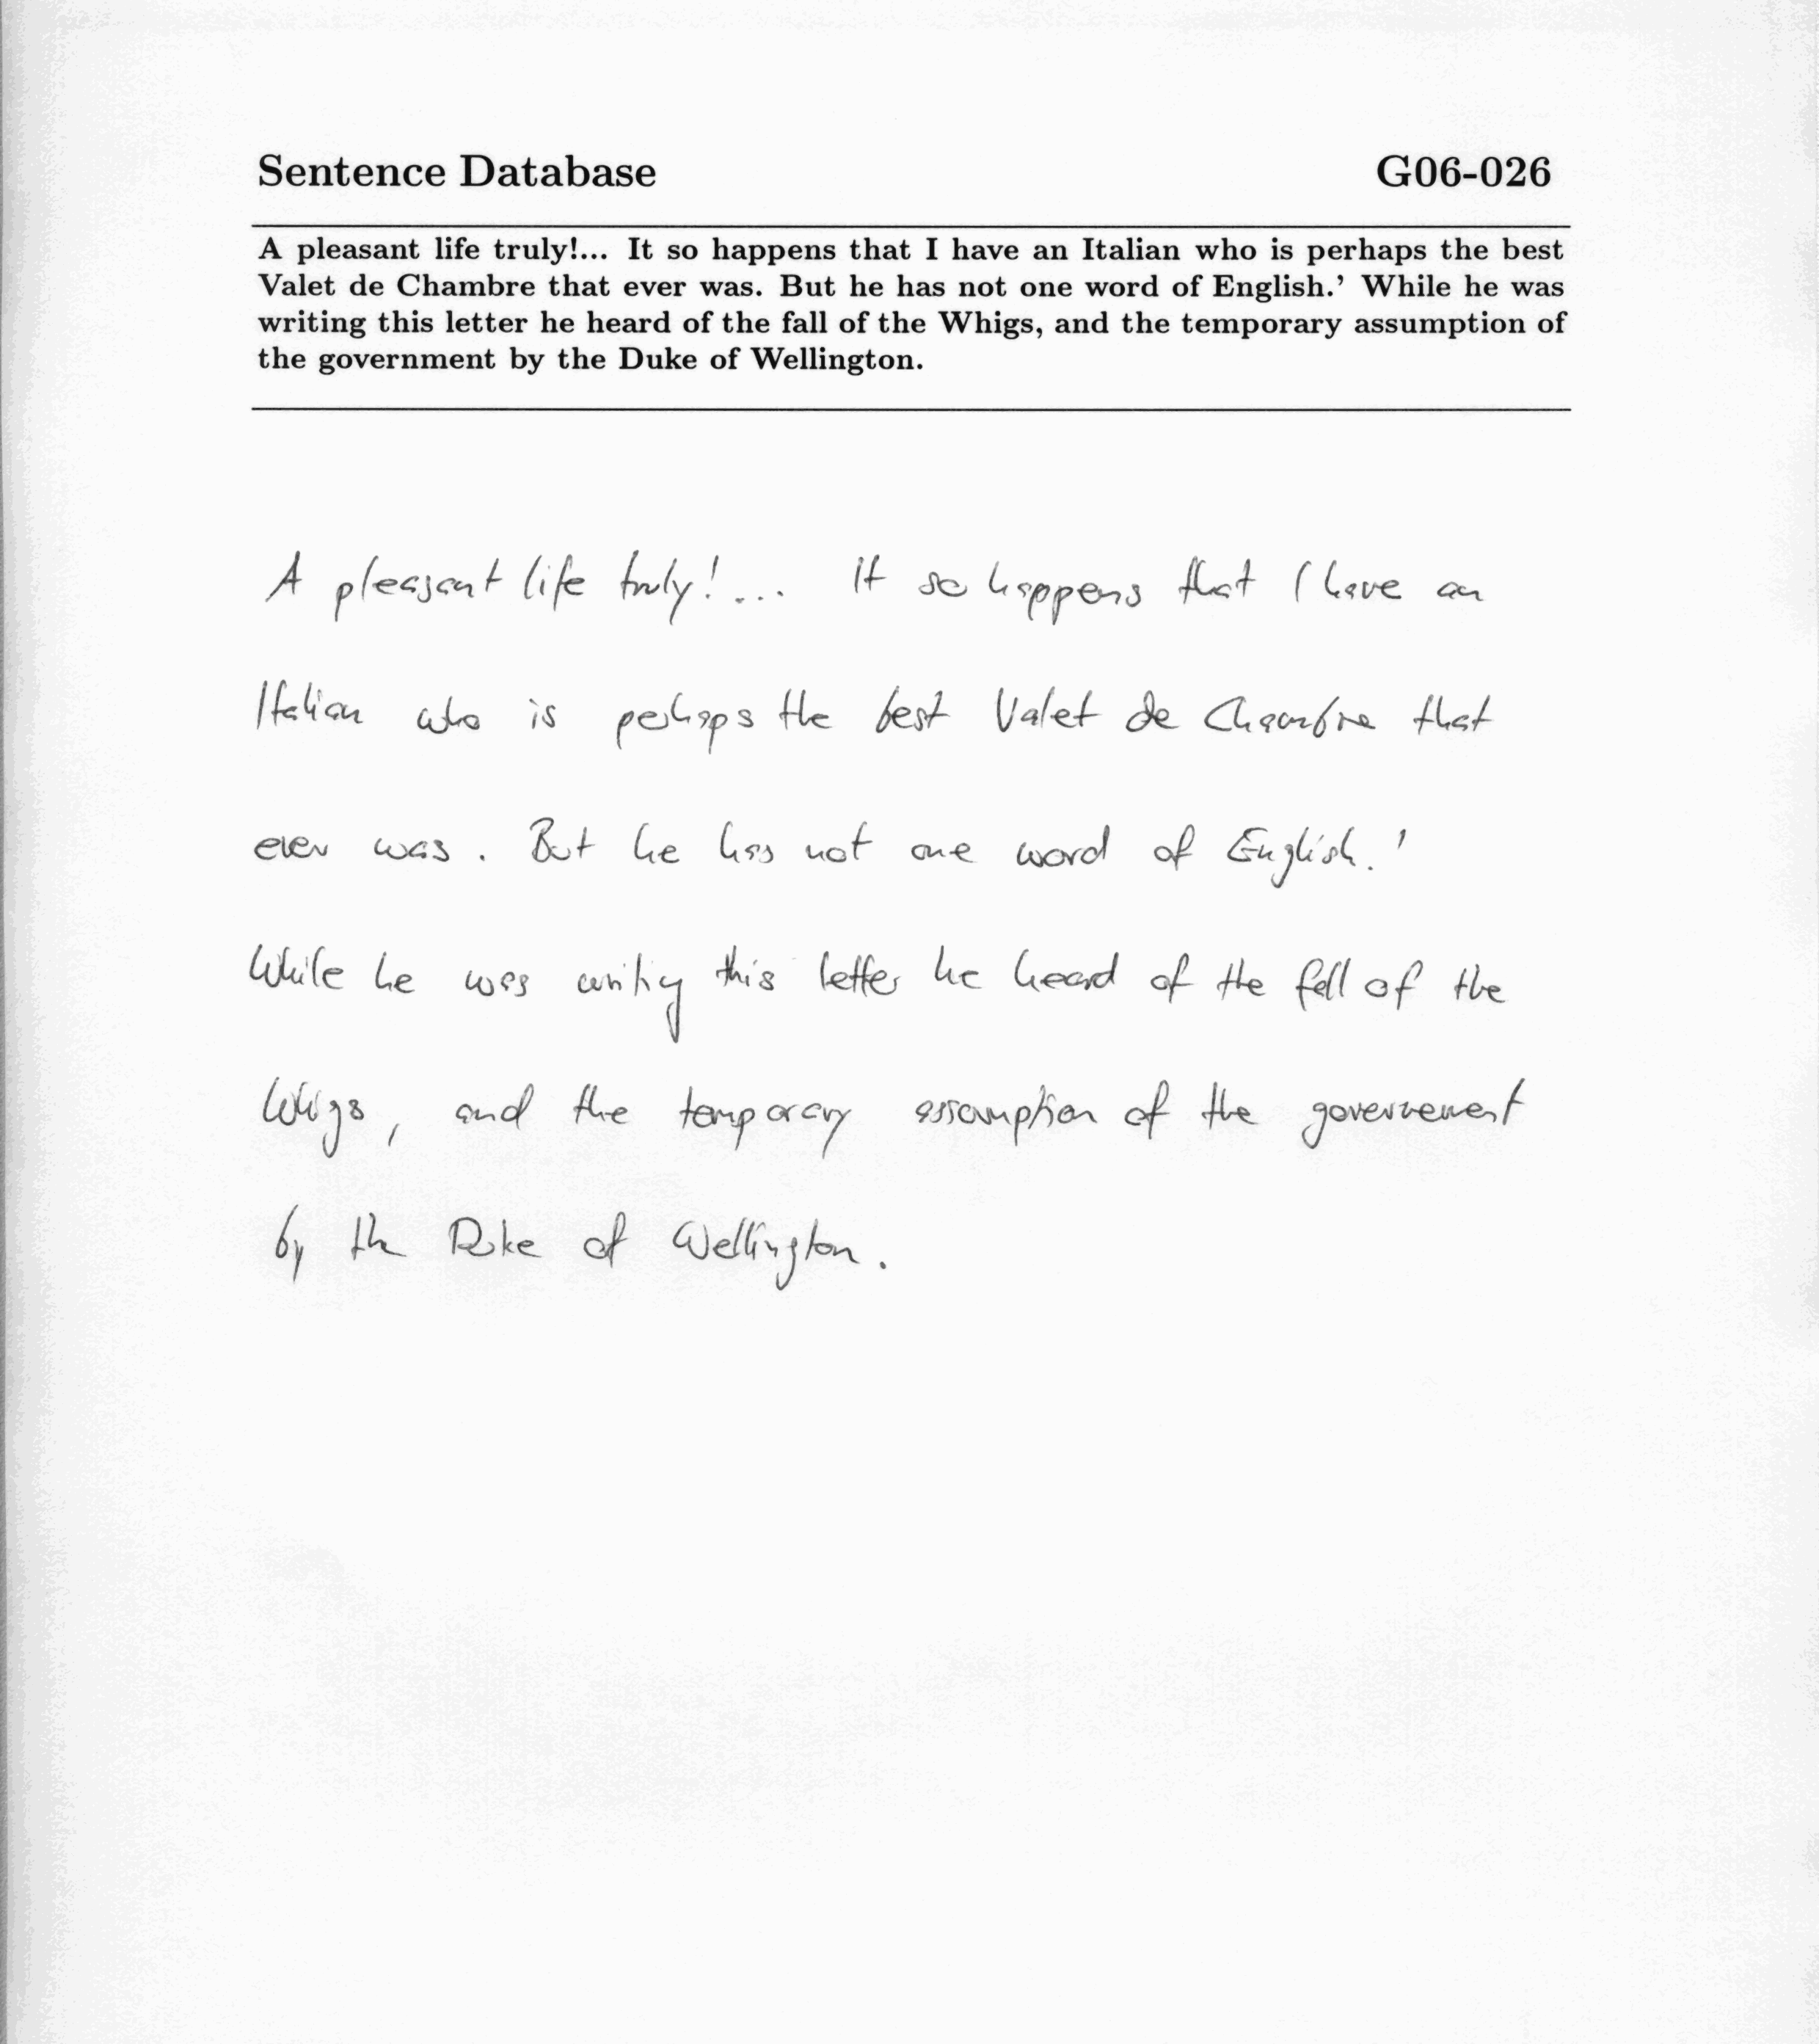 Sentence Database G06-026
A pleasant life truly!... It so happens that I have an Italian who is perhaps the best
Valet de Chambre that ever was. But he has not one word of English.' While he was
writing this letter he heard of the fall of the Whigs, and the temporary assumption of
the government by the Duke of Wellington.
A pleasant life truly!... It so happens that I have an
Italian who is perhaps the best Valet de Chambre that
ever was. But he has not one word of English.'
While he was writing this letter he heard of the fall of the
Whigs, and the temporary assumption of the governement
by the Duke of Wellington.